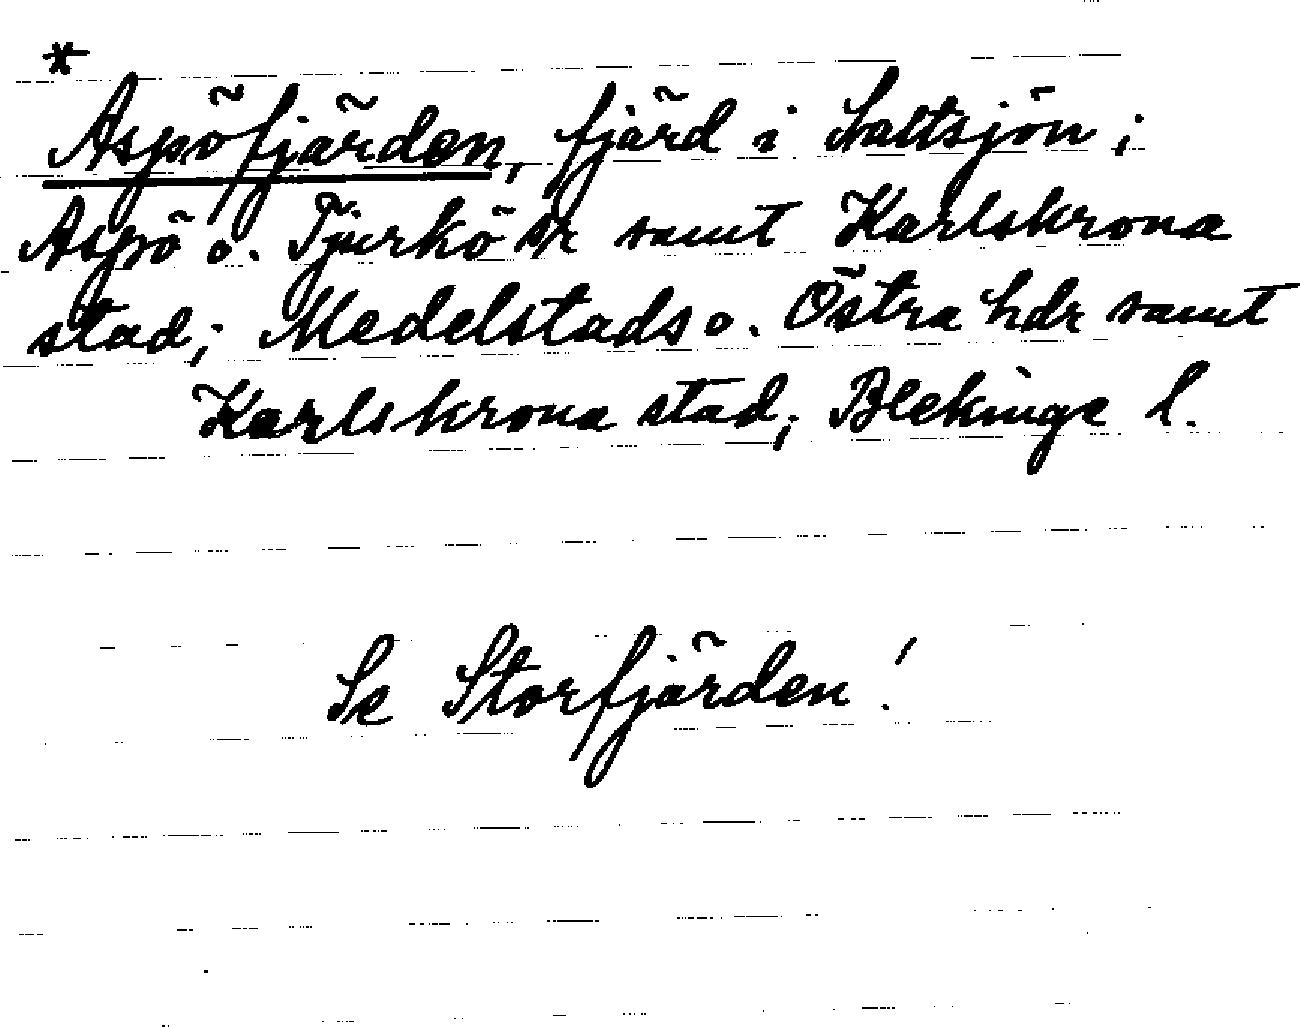 *
Aspöfjärden, fjärd i Saltsjön;
Aspö o. Tjurkö sr samt Karlskrona
stad; Medelstads o. Östra hdr samt
Karlskrona stad; Blekinge l.
Se Storfjärden!